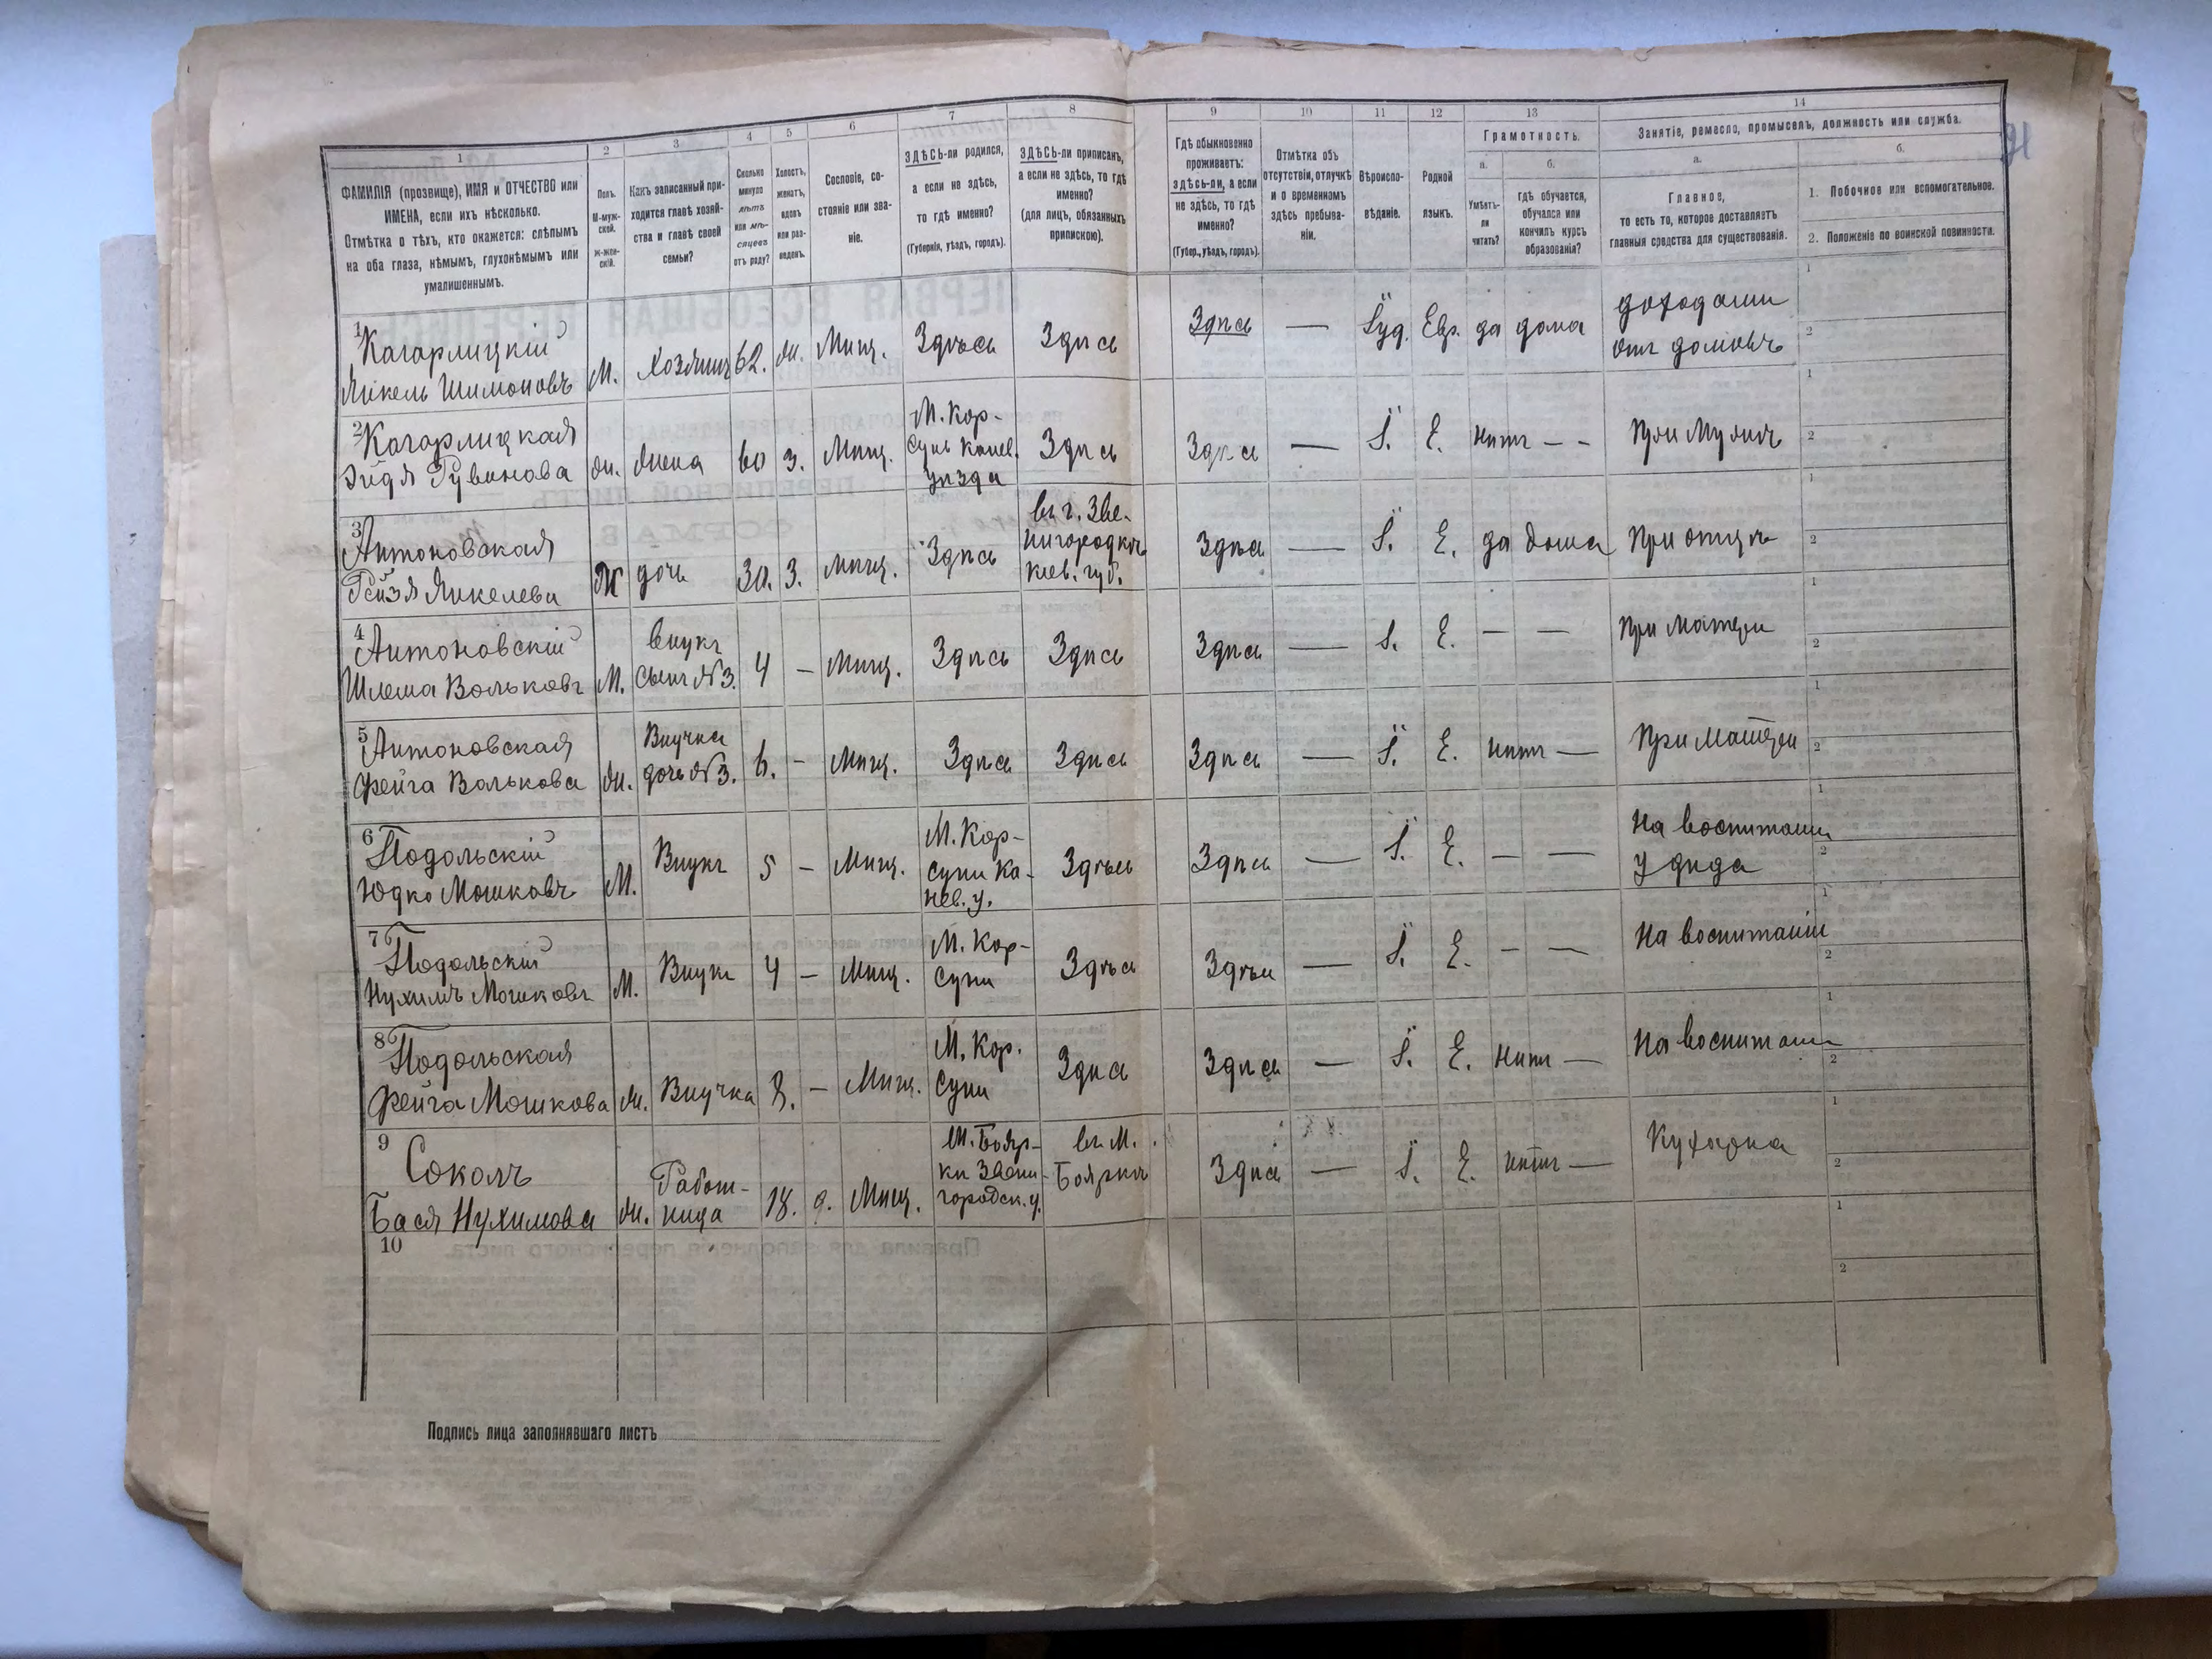 1
ФАМИЛІЯ (прозвище), ИМЯ и ОТЧЕСТВО или
ИМЕНА, если ихъ нѣсколько.
Отмѣтка о тѣхъ, кто окажется: слѣпымъ
на оба глаза, нѣмымъ, глухонѣмымъ или
умалишеннымъ.
2
Полъ.
М-муж-
ской.
Ж-жен-
скій.
3
Какъ записанный при-
ходится главѣ хозяй-
ства и главѣ своей
семьи?
4
Сколько
минуло
лѣтъ
или мѣ-
сяцевъ
отъ роду?
5
Холостъ,
женатъ,
вдовъ
или раз-
веденъ.
6
Сословіе, со-
стояніе или зва-
ніе.
7
ЗДѢСЬ-ли родился,
а если не здѣсь,
то гдѣ именно?
(Губернія, уѣздъ, городъ).
8
ЗДѢСЬ-ли приписанъ,
а если не здѣсь, то гдѣ
именно?
(для лицъ, обязанныхъ
припискою).
9
Гдѣ обыкновенно
проживаетъ:
здѣсь-ли, а если
не здѣсь, то гдѣ
именно?
(Губер., уѣздъ, городъ).
10
Отмѣтка объ
отсутствіи, отлучкѣ
и о временномъ
здѣсь пребыва-
ніи.
11
Вѣроиспо-
вѣданіе.
12
Родной
языкъ.
13
Грамотность.
а.
Умѣетъ-
ли
читать?
б.
гдѣ обучается,
обучался или
кончилъ курсъ
образованія?
14
Занятіе, ремесло, промыселъ, должность или служба.
а.
Главное,
то есть то, которое доставляетъ
главныя средства для существованія.
б.
1. Побочное или вспомогательное.
2. Положеніе по воинской повинности.
1
Кагарлицкій
Янкель Шимоновъ
М.
Хозяинъ
62.
ж.
Мѣщ.
Здѣсь
Здѣсь
Здѣсь
—
Іуд.
Евр.
да
дома
доходами
отъ домовъ
1
2
2
Кагарлицкая
Эйдя Рувинова
ж.
жена
60
з.
Мѣщ.
М. Кор-
сунь Канев.
уѣзда
Здѣсь
Здѣсь
—
І.
Е.
нѣтъ
- -
При мужѣ
1
2
3
Антоновская
Рейзя Янкелева
Ж
дочь
30.
З.
мѣщ.
Здѣсь
въ г. Зве-
нигородкѣ
кіев. губ.
Здѣсь
—
І.
Е.
да
дома
При отцѣ
1
2
4
Антоновскій
Шлема Вольковъ
М.
Внукъ
сынъ №3.
4
-
Мѣщ.
Здѣсь
Здѣсь
Здѣсь
—
І.
Е.
—
—
При матери
1
2
5
Антоновская
Фейга Волькова
ж.
Внучка
дочь №3.
6.
-
Мѣщ.
Здѣсь
Здѣсь
Здѣсь
—
І.
Е.
нѣтъ
—
При матери
1
2
6
Подольскій
Юдко Мошковъ
М.
Внукъ
5
-
Мѣщ.
М. Кор-
суни Ка-
нев. у.
Здѣсь
Здѣсь
—
І.
Е.
—
—
На воспитаніи
у дѣда
1
2
7
Подольскій
Нухимъ Мошковъ
М.
Внукъ
4
-
Мѣщ.
М. Кор-
суни
Здѣсь
Здѣсь
—
І.
Е.
-
—
На воспитаніи
1
2
8
Подольская
Фейга Мошкова
ж.
Внучка
8.
-
Мѣщ.
М. Кор.
суни
Здѣсь
Здѣсь
—
І.
Е.
Нѣтъ
—
На воспитаніи
1
2
9
Соколъ
Бася Нухимова
ж.
Работ-
ница
18.
д.
Мѣщ.
М. Бояр-
ки Звени-
городск. у.
въ М.
Боярки
Здѣсь
—
І.
Е.
нѣтъ
—
Кухарка
1
2
10
1
2
Подпись лица заполнявшаго листъ